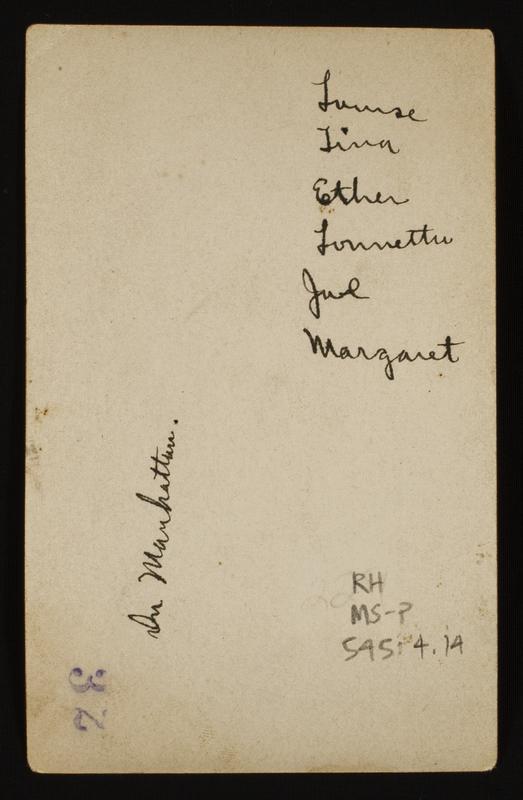 Louise
Tina
Ether
Lonnettie
Jud
Margaret
In Manhattan.
RH
MS-P
545:4.14
32